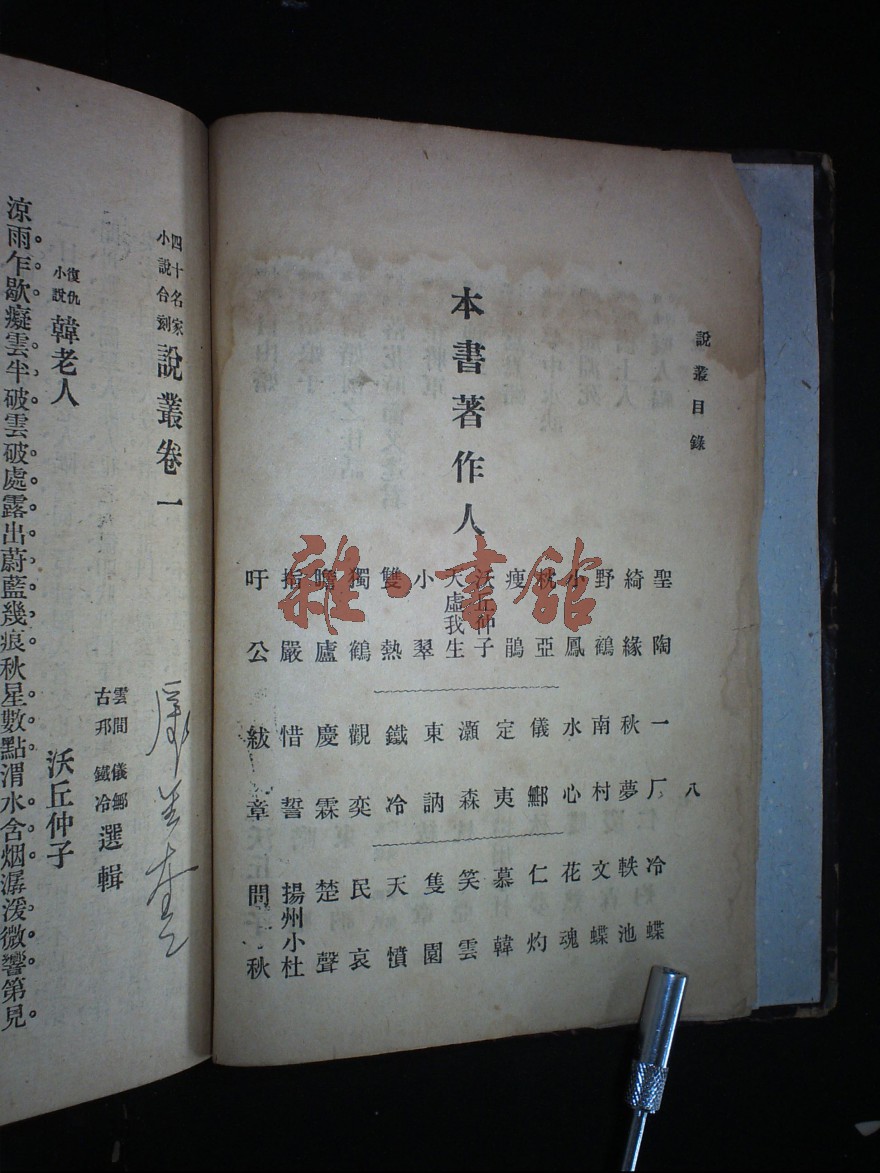 說叢目錄
八
本書著作人
聖陶
綺緣
野鶴
小鳳
枕亞
瘦鵑
沃丘仲子
天虛我生
小翠
雙熱
獨鶴
瞻廬
指嚴
吁公
一厂
秋夢
南村
水心
儀鄦
定夷
瀬森
東訥
鐵冷
觀奕
慶霖
惜誓
紱章
冷蝶
軼池
文蝶
花魂
仁灼
慕韓
笑雲
隻園
天憤
民哀
楚聲
揚州小杜
問秋
四十名家小說合刻 說叢卷一
雲間儀鄦
古邗鐵冷
選輯
復仇小說 韓老人 沃丘仲子
涼雨乍歇。癡雲半破。雲破處。露出蔚藍幾痕。秋星數點。渭水含烟。潺湲微響。第見
雜·書館